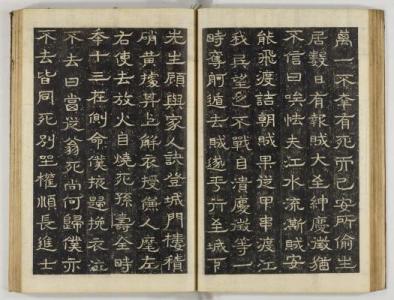 萬一不幸有死而已安所偷生
居數日有報賊大至紳慶徵猶
不信曰唉怯夫江水流澌賊安
能飛渡詰朝賊果從甲串渡江
我兵望之不戰自潰慶徵等一
時奪船遁去賊遂平行至城下
先生顧與家人訣登城門樓積
硝黃據其上解衣授傔人麾左
右使去放火自燒死孫壽全時
年十三在側命僕掖歸挽衣泣
不去曰當從翁死尚何歸僕亦
不去皆同死別坐權順長進士